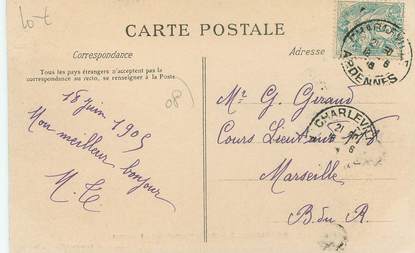 CARTE POSTALE
Correspondance
Adresse
Tous les pays étrangers n'acceptent pas la
correspondance au recto, se renseigner à la Poste
18 juin 1905
Mon meilleur bonjour
Mr G. Giraud
Cours Lieutaud
Marseille
B. du R.
CHARLEVILLE
ARDENNES
CHARLEVIL
21
6